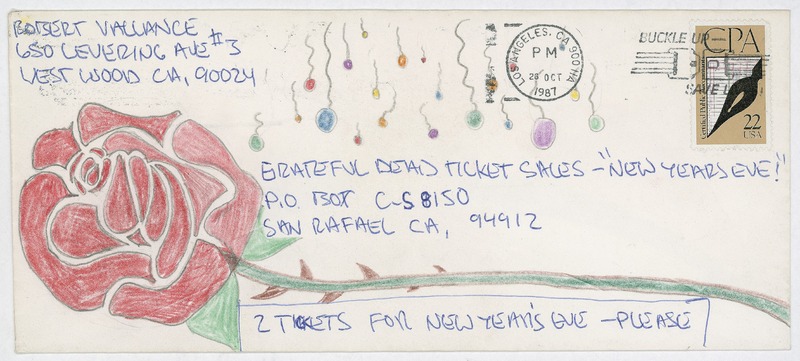 ROBERT VALLIANCE
650 LEVERING AVE #3
WEST WOOD CA, 90024
LOS ANGELES, CA 900
PM
28 OCT
1987
BUCKLE UP
CPA
Certified Public Accountants
22
USA
GRATEFUL DEAD TICKET SALES - "NEW YEARS EVE!"
P.O. BOX C-S 8150
SAN RAFAEL CA, 94912
2 TICKETS FOR NEW YEAR'S EVE - PLEASE